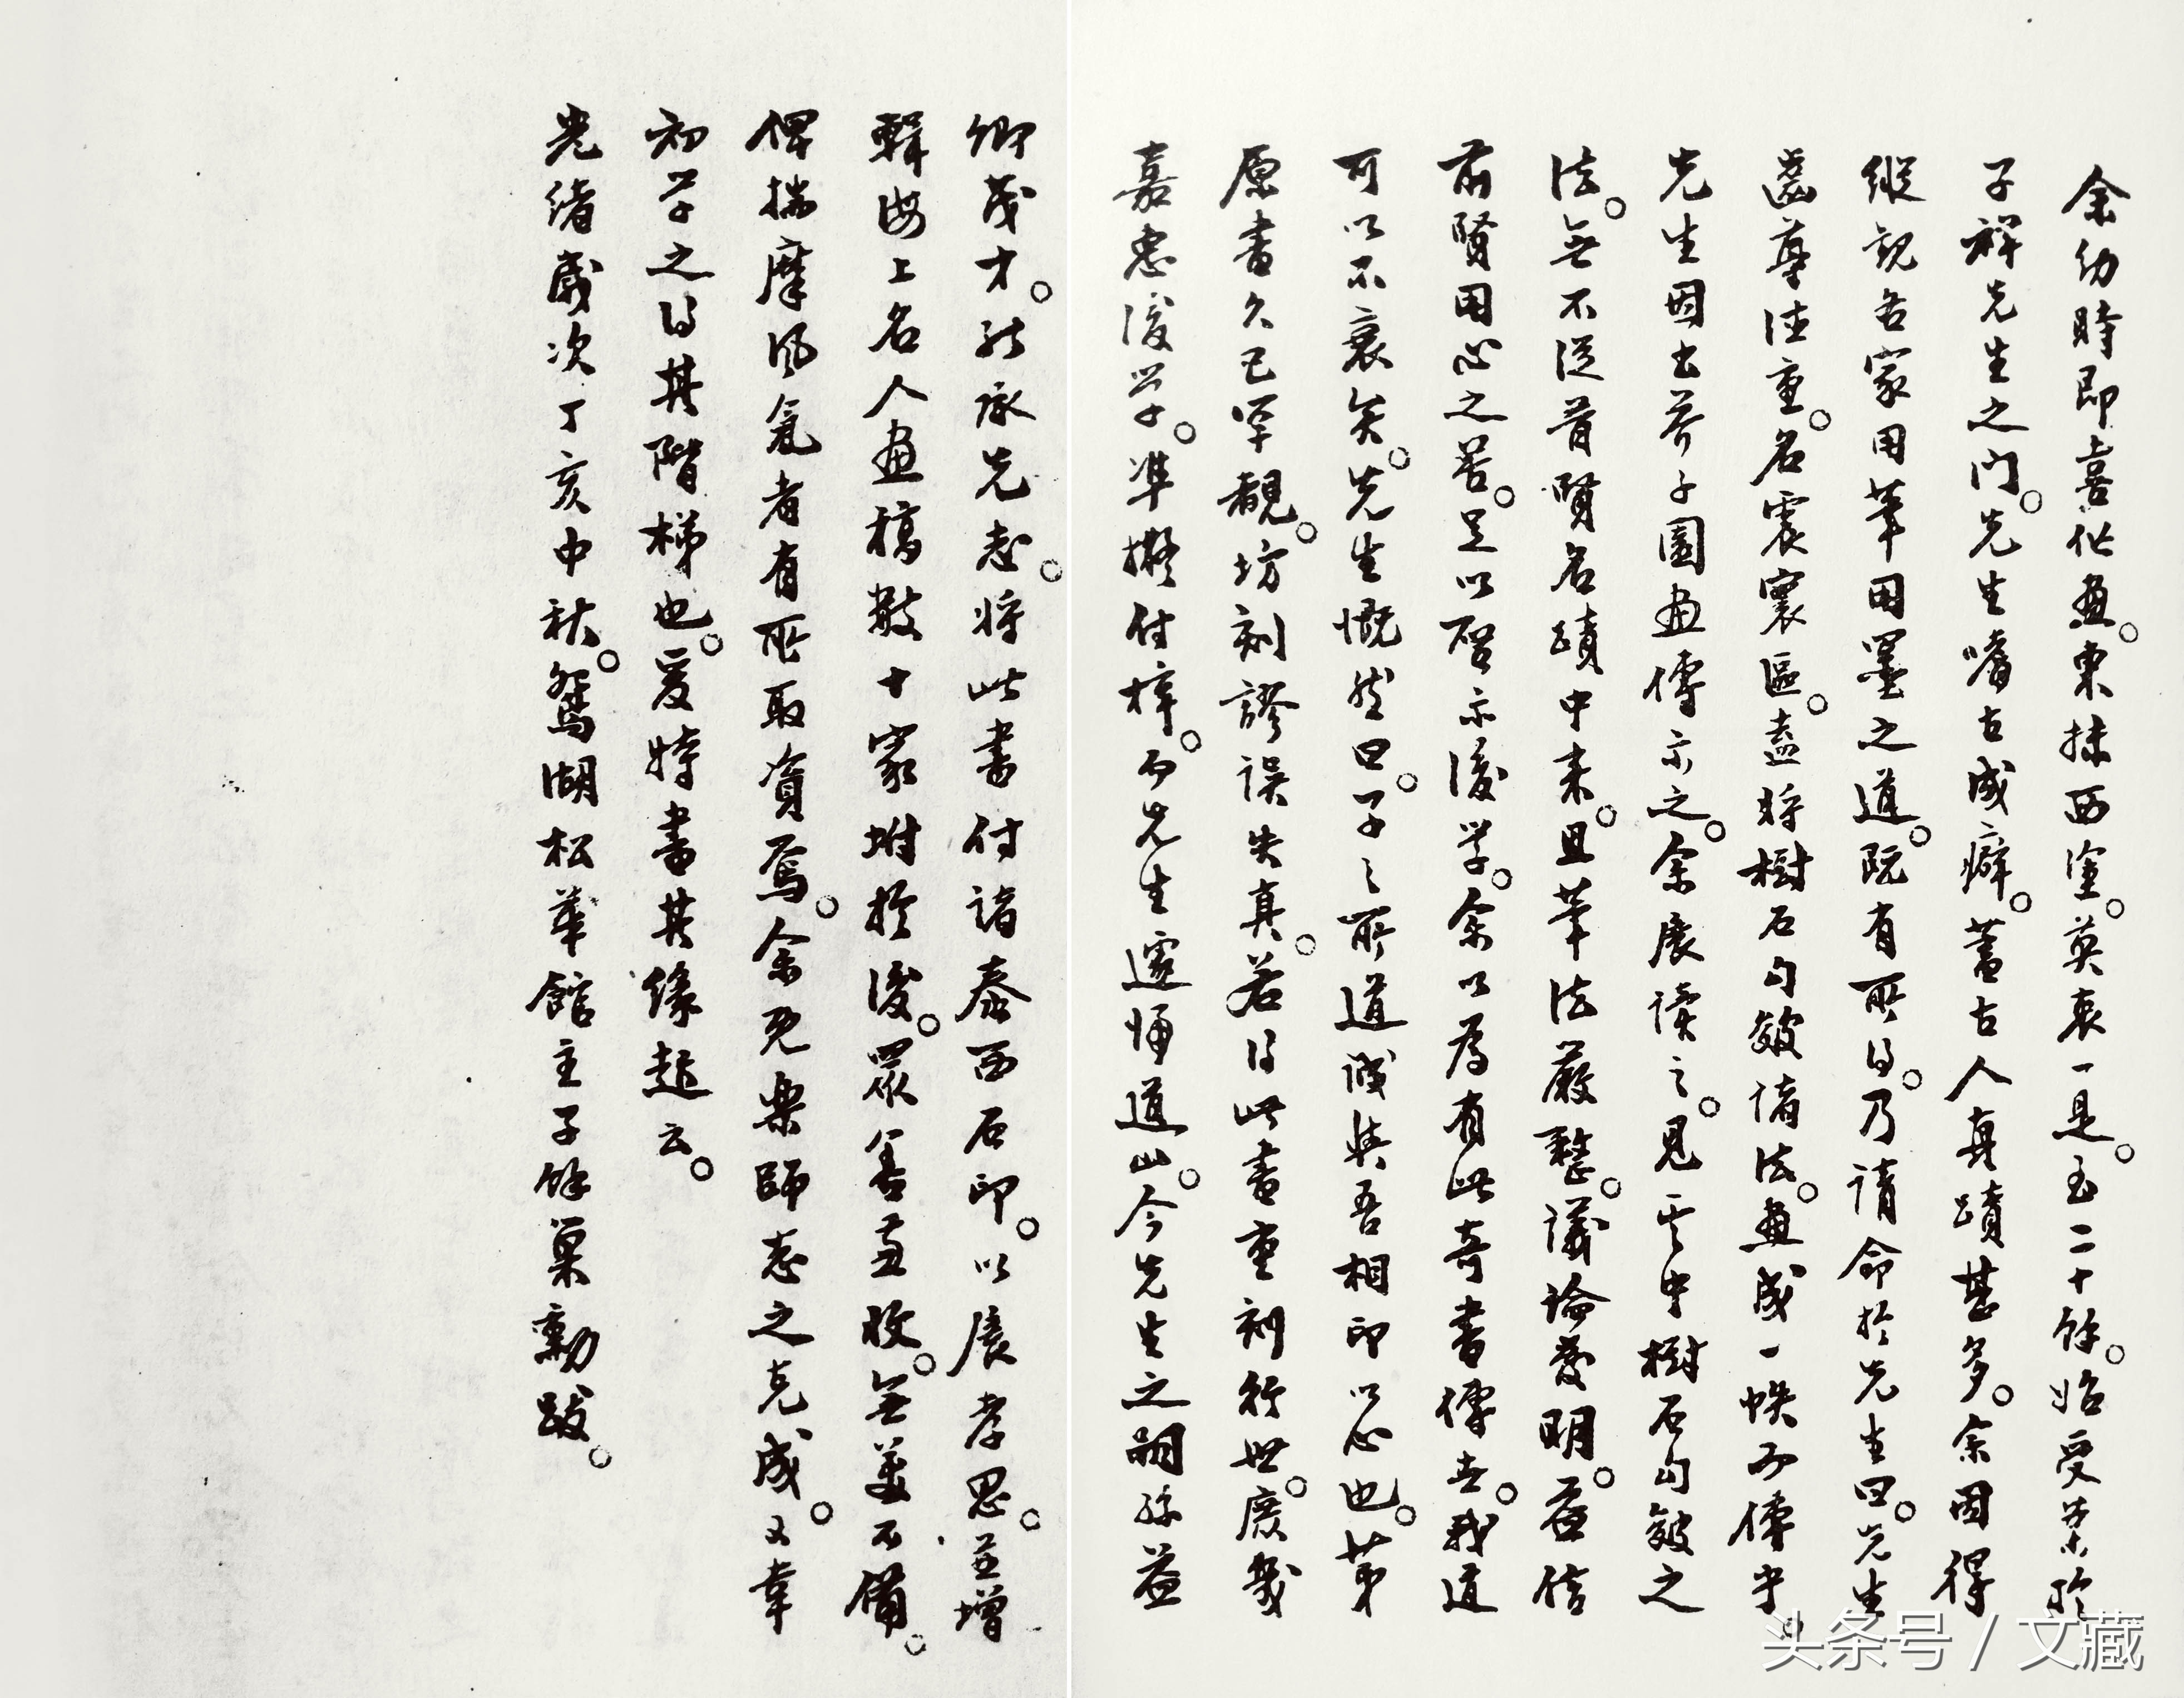 余幼時即喜作畫東抹西塗莫衷一是至二十餘始受業於
子祥先生之門先生嗜古成癖蓄古人真蹟甚多余因得
縱觀各家用筆用墨之道既有所得乃請命於先生曰先生
齒尊德重名震寰區盍將樹石勾皴諸法畫成一帙而傳乎
先生因出芥子園畫傳示之余展讀之見其中樹石勾皴之
法無不從昔賢名蹟中來且筆法嚴整議論發明益信
前賢用心之苦足以啓示後學余以為有此奇書傳世我道
可以不衰矣先生慨然曰子之所道誠與吾相印以心也第
原書久已罕覯坊刻謬誤失真若得此書重刻行世庶幾
嘉惠後學準擬付梓而先生遽歸道山今先生之嗣孫益
卿茂才能承先志將此書付諸泰西石印以展孝思並增
輯海上名人畫稿數十家坿於後眾善兼收無美不備
俾揣摩風氣者有所取資焉余既樂師志之克成又幸
初學之得其階梯也爰特書其緣起云
光緒歲次丁亥中秋鴛湖松華館主子餘巢勳跋
头条号 / 文藏